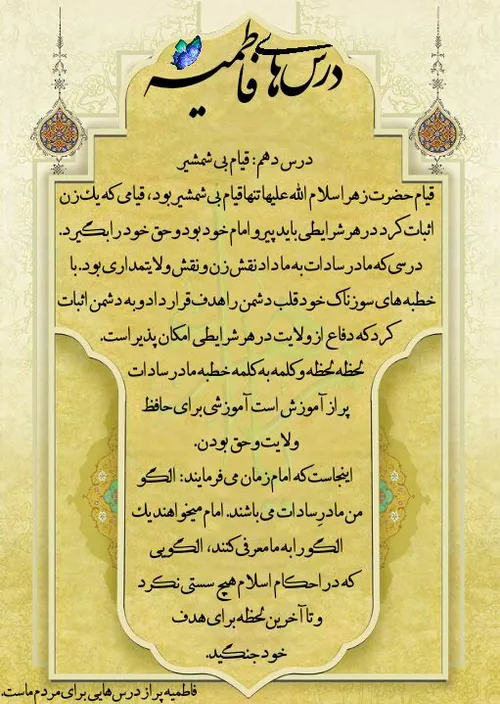 درس های فاطمیه
درس دهم: قیام بی شمشیر
قیام حضرت زهرا سلام الله علیها تنها قیام بی شمشیر بود، قیامی که یك زن
اثبات کرد در هر شرایطی باید پیرو امام خود بود و حق خود را بگیرد.
درسی که مادر سادات به ما داد نقش زن و نقش ولایتمداری بود. با
خطبه های سوزناک خود قلب دشمن را هدف قرار داد و به دشمن اثبات
کرد که دفاع از ولایت در هر شرایطی امکان پذیر است.
لحظه لحظه و کلمه به کلمه خطبه مادر سادات
پر از آموزش است آموزشی برای حافظ
ولایت و حق بودن.
اینجاست که امام زمان می فرمایند: الگو
من مادرِ سادات می باشند. امام میخواهند یك
الگو را به ما معرفی کنند، الگویی
که در احکام اسلام هیچ سستی نکرد
و تا آخرین لحظه برای هدف
خود جنگید.
فاطمیه پر از درس هایی برای مردم ماست.